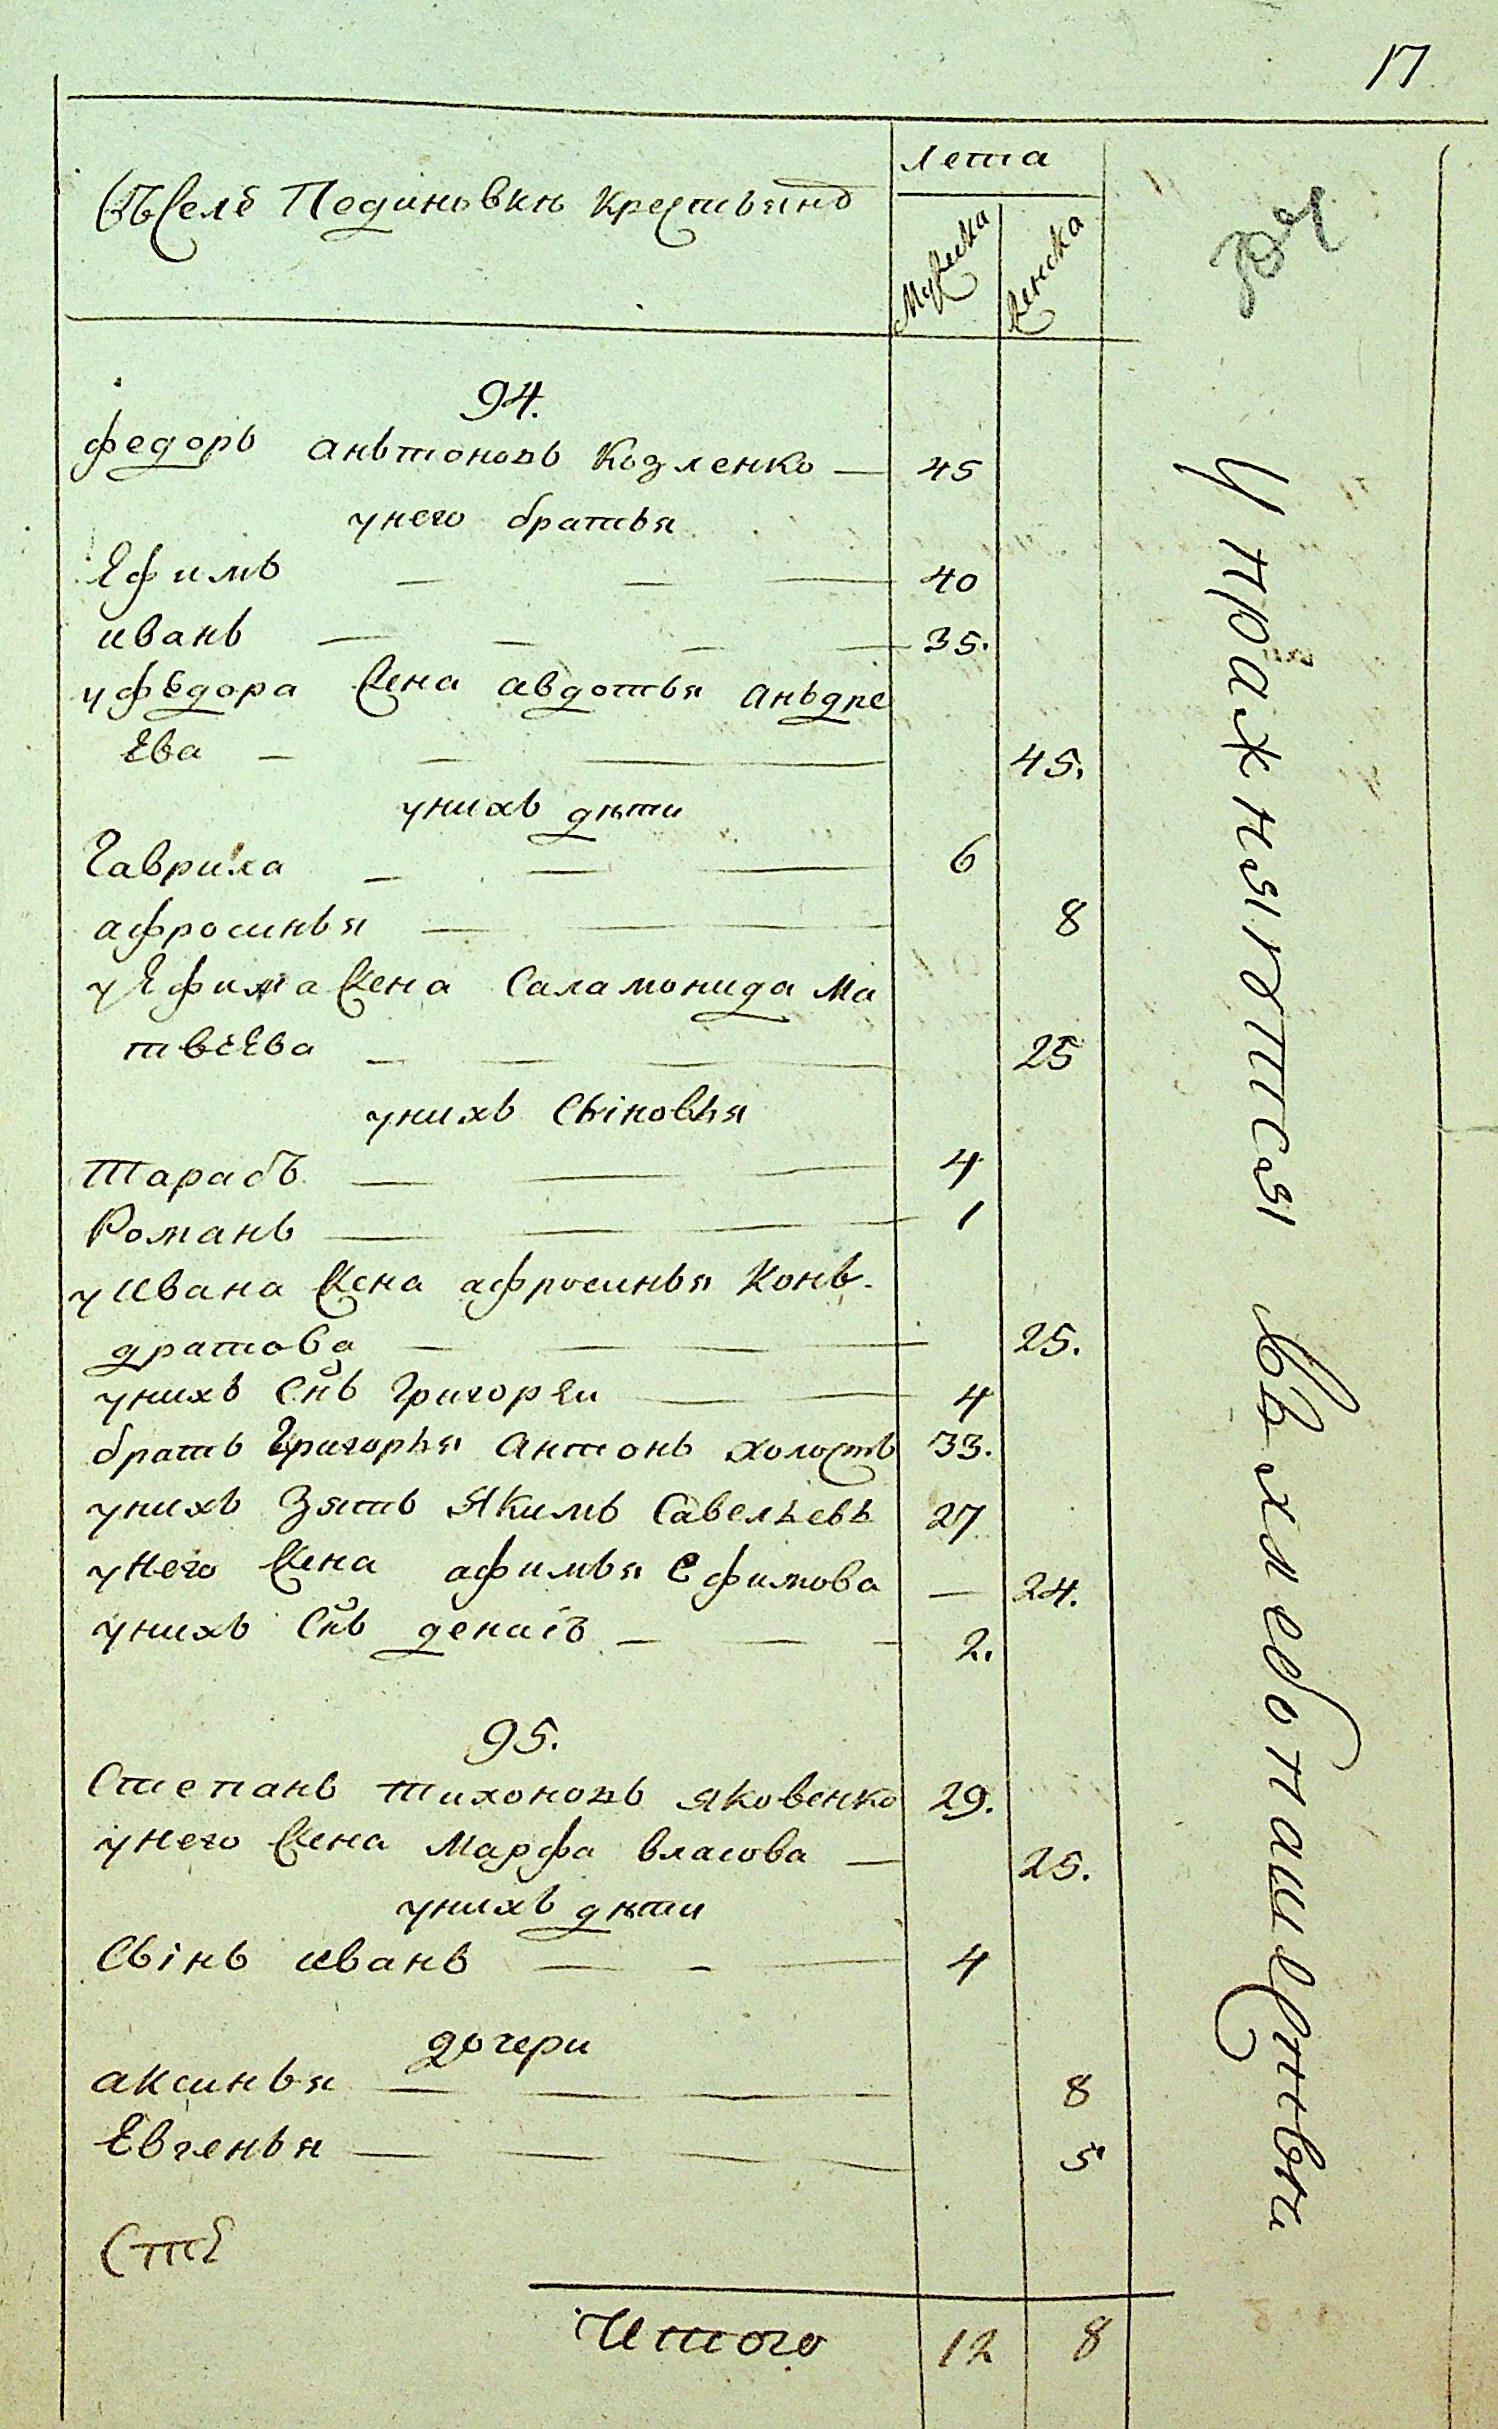 17
Въ селѣ Пединовки крестьянъ
лета
Мужеска
женска
94.
федоръ аньтоновъ Козленко — 45
унего братья
Ефимъ — — — 40
иванъ — — — — 35.
уфедора жена авдотья аньдре
Ева — — — 45.
унихъ дѣти
Гаврила — — — 6
афросинья — — 8
уЕфима жена Саламонида Ма
твеЕва — — — 25
унихъ Сыновья
Тарасъ — — — 4
Романъ — — 1
уивана жена афросиньяКонь-
дратова — — — — 25.
унихъ Снъ григорЕи — — 4
братъ григорья антонъ холостъ 33.
унихъ Зять Якимъ Савельевъ 27
унего жена афимья Ефимова — 24.
унихъ Снъ денисъ — — — 2.
95.
Степанъ тихоновъ яковенко 29.
унего жена Марфа власова — 25.
унихъ дѣти
Сынъ иванъ — - — 4
дочери
аксинья — — — 8
Евгенья — — — 5
Итого 12 8
Упражняются въ хлебопашестви